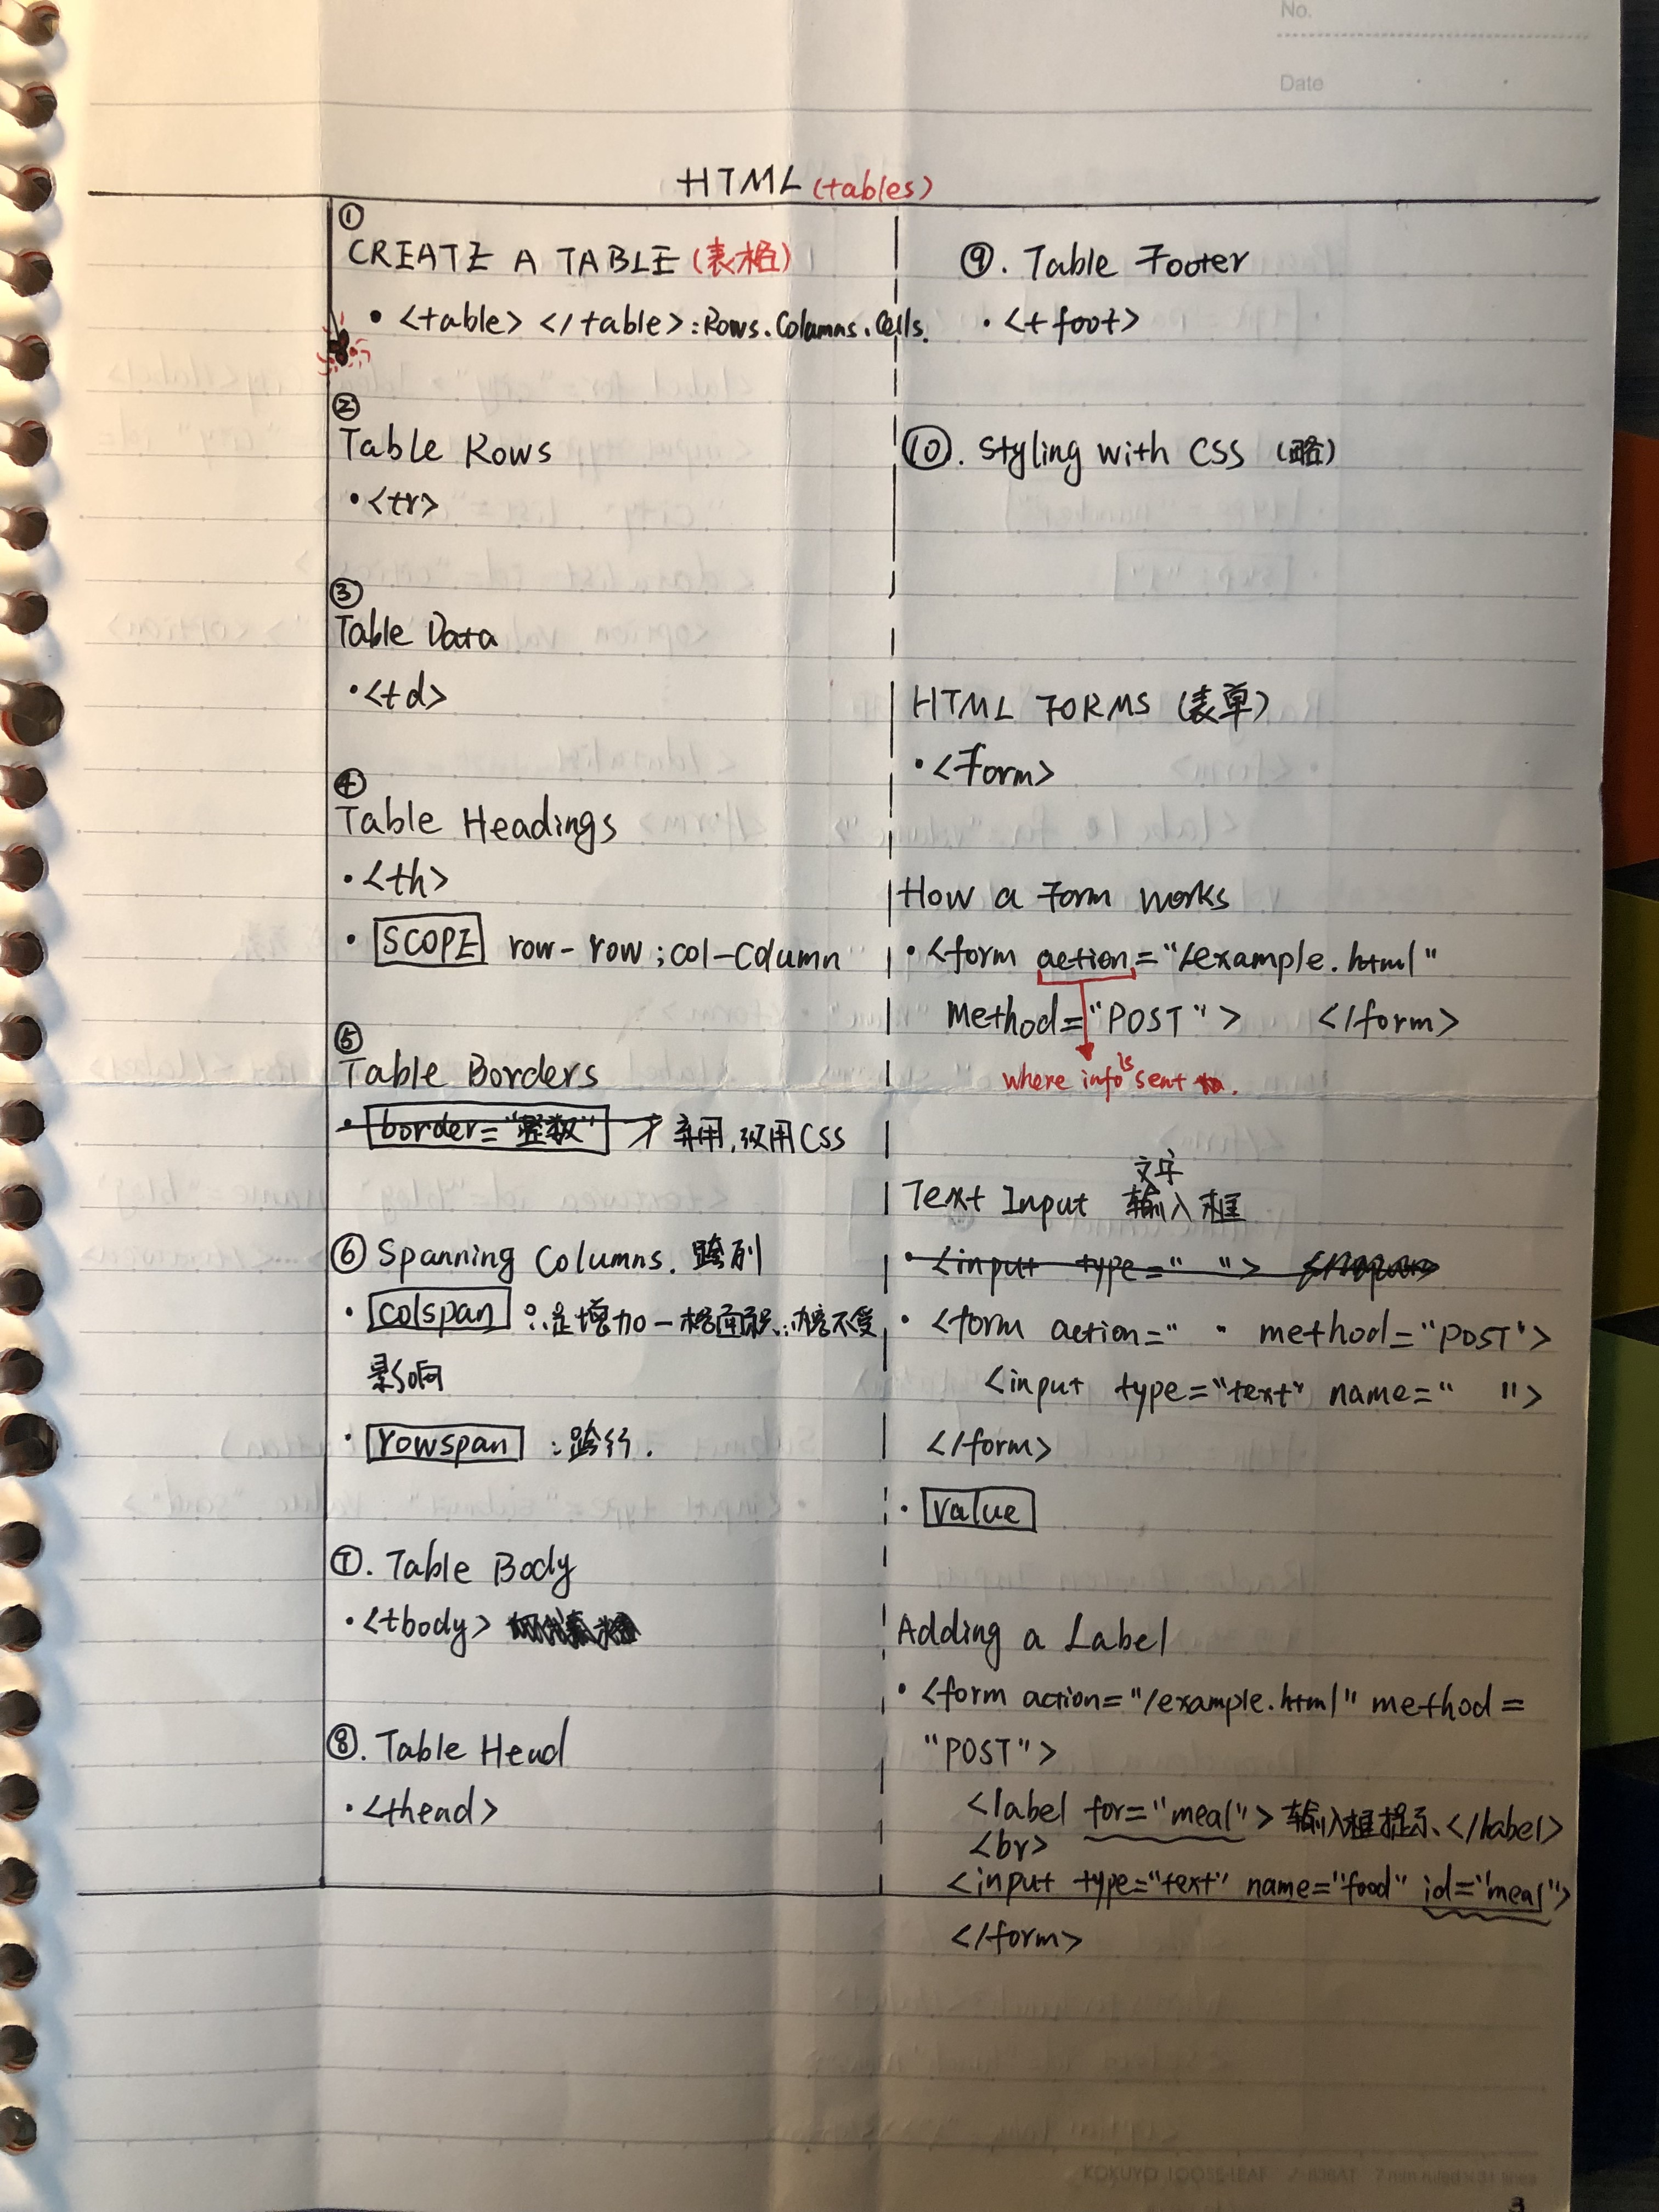 No.
Date
HTML (tables)
①
CREATE A TABLE (表格)
• <table> </table>:Rows.Columns.Cells.
②
Table Rows
• <tr>
③
Table Data
• <td>
④
Table Headings
• <th>
• SCOPE row-row;col-column
⑤
Table Borders
• border="整数" → 弃用,改用CSS
⑥ Spanning Columns. 跨列
• colspan :是增加一格面积;内容不受
影响
• rowspan :跨行.
⑦. Table Body
• <tbody>
⑧. Table Head
• <thead>
⑨. Table Footer
• <tfoot>
⑩. Styling with CSS (略)
HTML FORMS (表单)
• <Form>
How a Form Works
• <form action="/example.html"
Method="POST"> </form>
where info is sent to.
Text Input 文字输入框
• <input type=" ">
• <form action=" • method="POST">
<input type="text" name=" ">
</form>
• Value
Adding a Label
• <form action="/example.html" method=
"POST">
<label for="meal"> 输入框提示 </label>
<br>
<input type="text" name="food" id="meal">
</form>
3